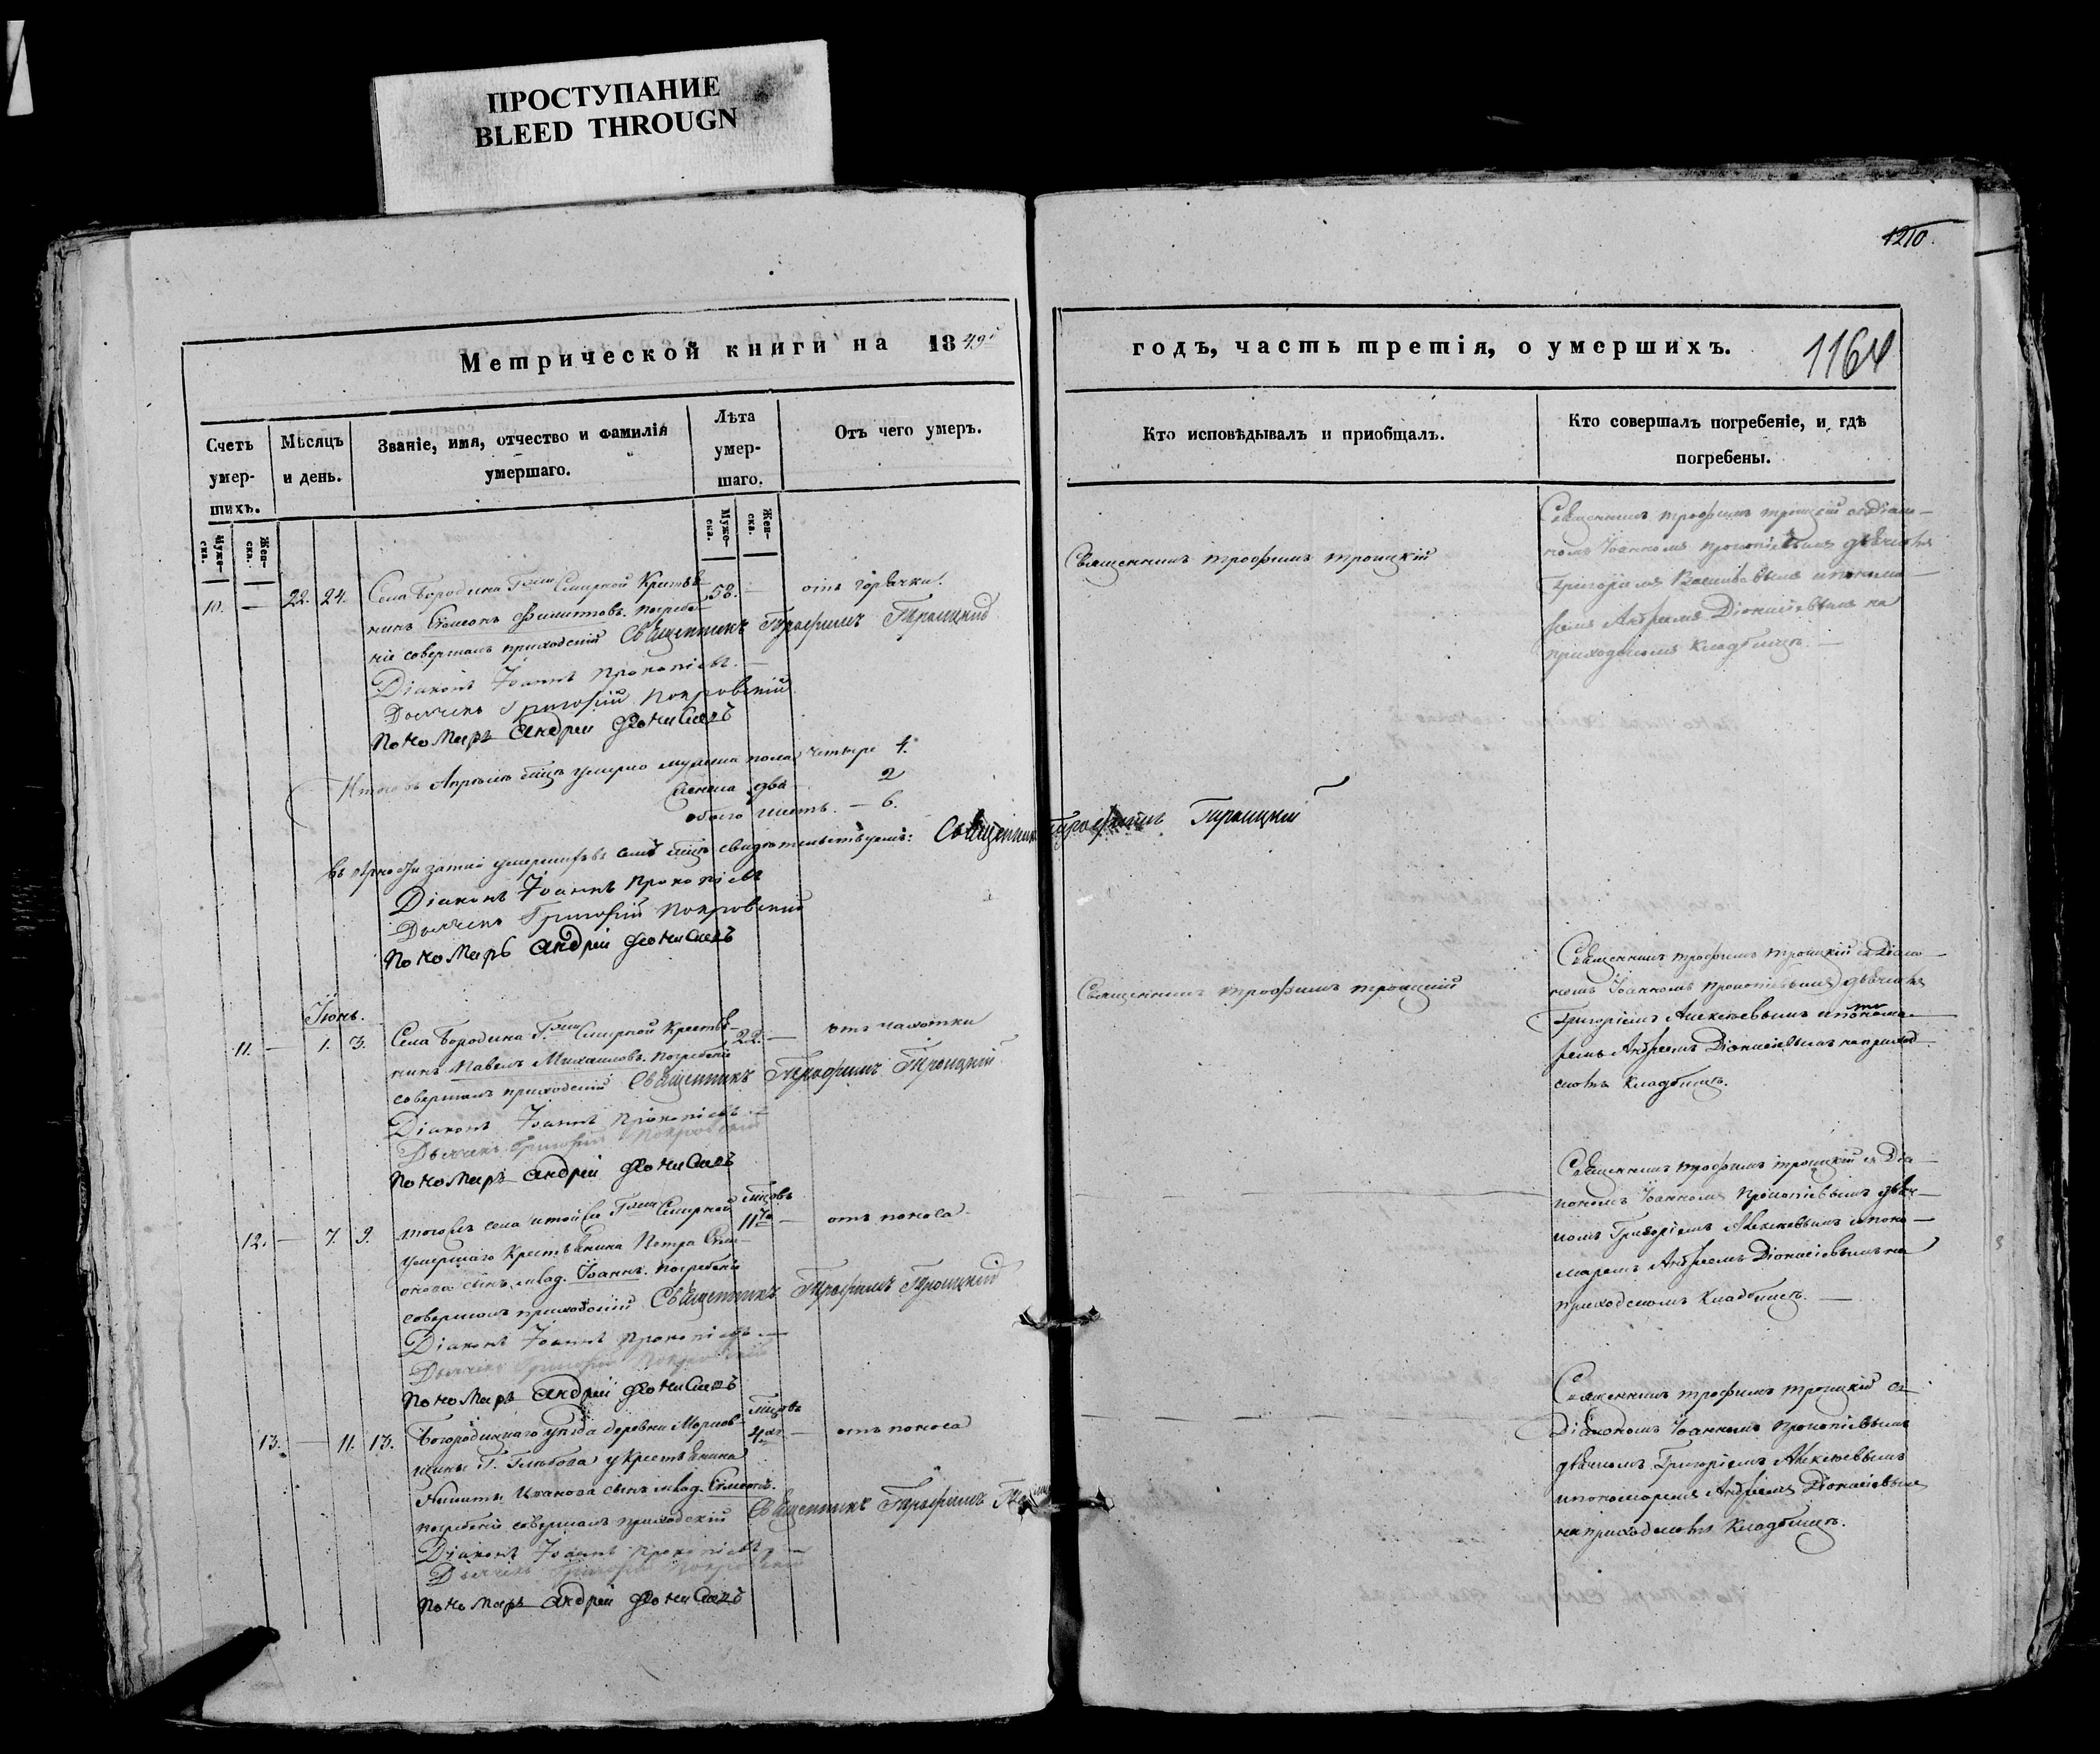 ПРОСТУПАНИЕ
BLEED THROUGN
1210.
Метрической книги на 1849й
годъ, часть третія, о умершихъ.
1164
Счетъ умер-шихъ.
Мѣсяцъ и день.
Званіе, имя, отчество и фамилія умершаго.
Лѣта умер-шаго.
Отъ чего умеръ.
Кто исповѣдывалъ и приобщалъ.
Кто совершалъ погребеніе, и гдѣ погребены.
Муже-ска.
Жен-ска.
Муже-ска.
Жен-ска.
10. — 22. 24. Села Бородина Гжи Смирной Крестья- 58. — отъ горячки.
нинъ Симеонъ Филиповъ. погребе-
ніе совершалъ приходскій Священникъ Трофимъ Троицкій
Діаконъ Іоаннъ Прокопіевъ. —
Дьячекъ Григорій Покровскій
Пономарь Андрей Дionисіевъ
Священникъ трофимъ троицкій
Священникъ трофимъ троицкій съ Діако-
номъ Іоанномъ прокопіевымъ дьячкомъ
Григоріемъ и понома-
ремъ Андреемъ Діонисіевымъ на
приходскомъ кладбищѣ. —
Итого въ Апрѣлѣ мцѣ умерло мужеска пола четыре 4.
женска два 2
обоего шесть. — 6.
въ вѣрности записи умершихъ въ семъ мцѣ свидѣтельствуемъ: Священникъ Трофимъ Троицкій
Діаконъ Іоаннъ Прокопіевъ
Дьячекъ Григорій Покровскій
Пономарь Андрій Діонисіевъ
Іюнь.
11. — 1. 3. Села Бородина Гжи Смирной Крестья- 22. — отъ чахотки
нинъ Павелъ Михаиловъ. погребеніе
совершалъ приходскій Священникъ Трофимъ Троицкій
Діаконъ Іоаннъ Прокопіевъ —
Дьячекъ Григорій Покровскій
Пономарь Андрій Діонисіевъ
Священникъ трофимъ троицкій
Священникъ трофимъ троицкій съ Діако-
номъ Іоанномъ прокопіевымъ дьячкомъ
Григоріемъ Алексѣевымъ и понома-
ремъ Андреемъ Діонисіевымъ на приход-
скомъ кладбищѣ.
12. — 7. 9. того же села и той же Гжи Смирной мцовъ 11ти — отъ поноса.
умершаго Крестьянина Петра Сим-
онова сынъ млад. Іоаннъ. погребеніе
совершалъ приходскій Священникъ Трофимъ Троицкій
Діаконъ Іоаннъ Прокопіевъ —
Дьячекъ Григорій Покровскій
Пономарь Андрій Діонисіевъ
Священникъ трофимъ троицкій съ Діа-
кономъ Іоанномъ Прокопіевымъ дьяч-
комъ Григоріемъ Алексѣевымъ и поно-
маремъ Андреемъ Діонисіевымъ на
приходскомъ кладбищѣ. —
13. — 11. 13. Богородицкаго уѣзда деревни мцовъ 4хъ — отъ поноса
щины Г. Глѣбова у Крестьянина
Никиты Иванова сынъ млад. Симеонъ.
погребеніе совершалъ приходскій Священникъ Трофимъ Троицкій
Діаконъ Іоаннъ Прокопіевъ —
Дьячекъ Григорій Покровскій
Пономарь Андрій Діонисіевъ
Священникъ трофимъ троицкій съ
Діакономъ Іоанномъ Прокопіевымъ
дьячкомъ Григоріемъ Алексѣевымъ
и пономаремъ Андреемъ Діонисіевымъ
на приходскомъ кладбищѣ.